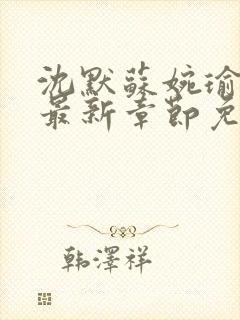 沈默蘇婉瑜
最新章節免
韩澤祥